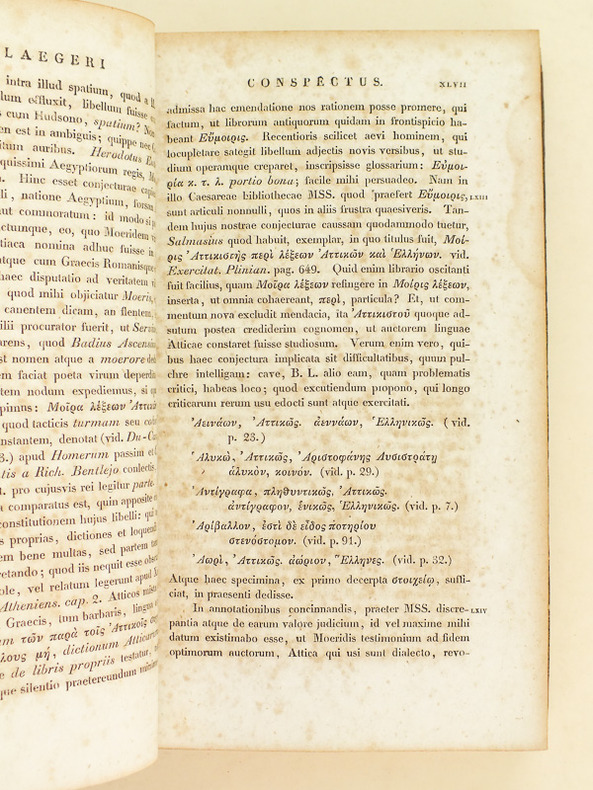 LAEGERI
intra illud spatium, quod a
effluxit, libellum fuisse
cum Hudsono, spatium?
en est in ambiguis; quippe nec
auribus. Herodotus
Aegyptiorum regis,
Hinc esset conjecturae
natione Aegyptium,
commoratum: id modo si
eo, quo Moeridem
nomina adhuc fuisse
atque cum Graecis Romanisque
haec disputatio ad veritatem
quod mihi objiciatur Moeris,
canentem dicam, an flentem,
procurator fuerit, ut
quod Badius
est nomen atque a moerore
faciat poeta virum
nodum expediemus, si
Μοῖρα λέξεων
quod tacticis turmam seu
denotat (vid. Du-
apud Homerum passim et
a Rich. Bentlejo
pro cujusvis rei legitur parte
comparatus est, quin apposite
constitutionem hujus libelli:
proprias, dictiones et
bene multas, sed partem
quod iis nequit esse
vel relatum legerunt apud
Atheniens. cap. 2. Atticos
Graecis, tum barbaris, lingua
τῶν παρὰ τοῖς
μή, dictionum
de libris propriis testatur,
silentio praetereundum
CONSPECTUS. XLVII
admissa hac emendatione nos rationem posse promere, qui
factum, ut librorum antiquorum quidam in frontispicio ha-
beant Εὔμοιρις. Recentioris scilicet aevi hominem, qui
locupletare sategit libellum adjectis novis versibus, ut stu-
dium operamque creparet, inscripsisse glossarium: Εὐμοι-
ρία κ. τ. λ. portio bona; facile mihi persuadeo. Nam in
illo Caesareae bibliothecae MSS. quod praefert Εὔμοιρις, LXIII
sunt articuli nonnulli, quos in aliis frustra quaesiveris. Tan-
dem hujus nostrae conjecturae caussam quodammodo tuetur,
Salmasius quod habuit, exemplar, in quo titulus fuit, Μοί-
ρις Ἀττικιστὴς περὶ λέξεων Ἀττικῶν καὶ Ἑλλήνων. vid.
Exercitat. Plinian. pag. 649. Quid enim librario oscitanti
fuit facilius, quam Μοῖρα λέξεων refingere in Μοίρις λέξεων,
inserta, ut omnia cohaereant, περὶ, particula? Et, ut com-
mentum nova excludit mendacia, ita Ἀττικιστοῦ quoque ad-
sutum postea crediderim cognomen, ut auctorem linguae
Atticae constaret fuisse studiosum. Verum enim vero, qui-
bus haec conjectura implicata sit difficultatibus, quum pul-
chre intelligam: cave, B. L. alio eam, quam problematis
critici, habeas loco; quod excutiendum propono, qui longo
criticarum rerum usu edocti sunt atque exercitati.
Ἀεινάων, Ἀττικῶς. ἀεννάων, Ἑλληνικῶς. (vid.
p. 23.)
Ἁλυκὼ, Ἀττικῶς, Ἀριστοφάνης Λυσιστράτῃ
ἁλυκόν, κοινόν. (vid. p. 29.)
Ἀντίγραφα, πληθυντικῶς, Ἀττικῶς.
ἀντίγραφον, ἑνικῶς, Ἑλληνικῶς. (vid. p. 7.)
Ἀρίβαλλον, ἐστὶ δὲ εἶδος ποτηρίου
στενόστομον. (vid. p. 91.)
Ἀωρὶ, Ἀττικῶς. ἀώριον, Ἕλληνες. (vid. p. 32.)
Atque haec specimina, ex primo decerpta στοιχείῳ, suffi-
ciat, in praesenti dedisse.
In annotationibus concinnandis, praeter MSS. discre- LXIV
pantia atque de earum valore judicium, id vel maxime mihi
datum existimabo esse, ut Moeridis testimonium ad fidem
optimorum auctorum, Attica qui usi sunt dialecto, revo-